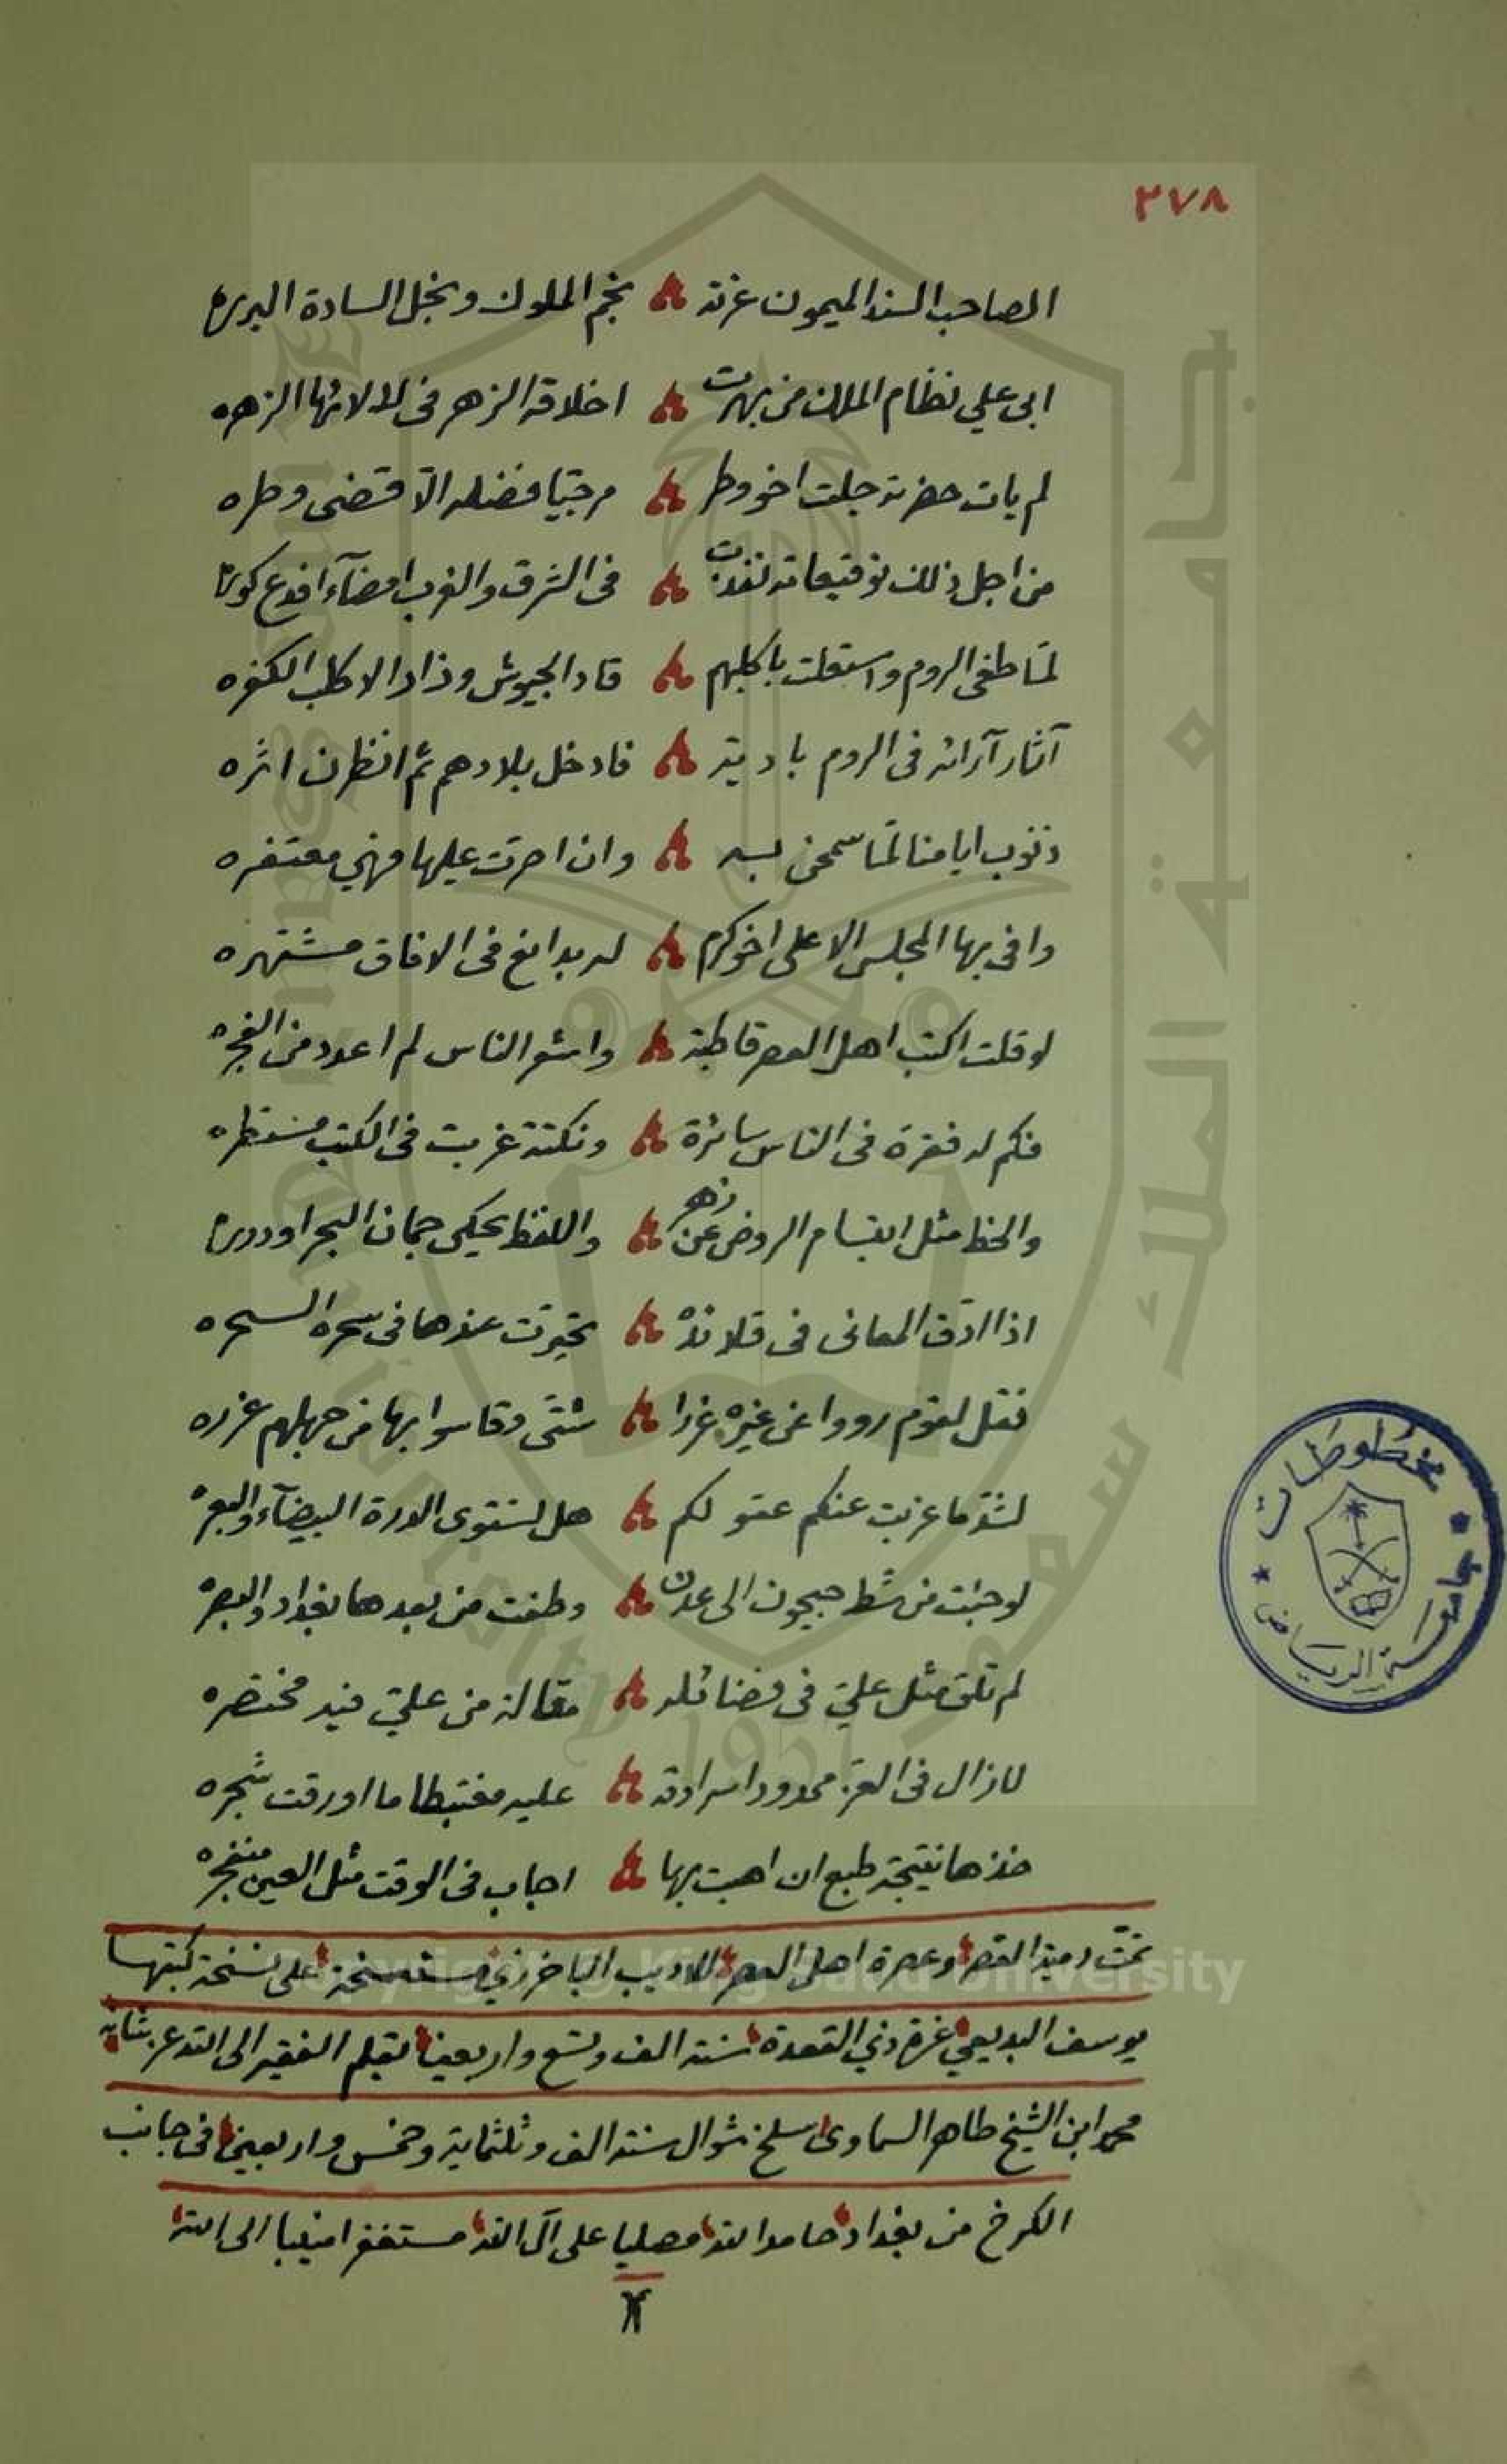 ٣٧٨
الصاحب السند الميمون غرته نجم الملوك ونجل السادة البرره
ابي علي نظام الملك من بهرت اخلاقه الزهر في لالائها الزهره
لم يات حضرته جلت اخو وطر مرجيا فضله الا قضى وطره
من اجل ذلك توقيعاته نفذت في الشرق والغرب امضآء افدع كوره
لما طغى الروم واستعلت باكلبهم قاد الجيوش وذاد الاكلب الكفره
آثار آرائه في الروم بادية فادخل بلادهم ثم انظرن اثره
ذنوب ايامنا لما سمحن به وان اصرت عليها فهي مغتفره
وافى بها المجلس الاعلى اخو كرم له بدائع في الافاق مشتهره
لو قلت اكتب اهل العصر قاطبة واشعر الناس لم اعدد من الفجره
فكم له فقرة في الناس سائرة ونكتة غربت في الكتب مستطره
والخط مثل ابتسام الروض عن زهر واللفظ يحكي جمان البحر او درره
اذا ادق المعاني في قلائده تحيرت عندها في سحره السحره
فقل لقوم رووا عن غيره غررا شتى وقاسوا بها من جهلهم غرره
لشد ما عزبت عنكم عقولكم هل تستوي الدرة البيضآء والبعره
لو جئت من شط جيحون الى عدن وطفت من بعدها بغداد والبصره
لم تلق مثل علي في فضائله مقالة من علي فيه مختصره
لا زال في العز ممدودا سرادقه عليه مغتبطا ما اورقت شجره
خذها نتيجة طبع ان اهبت بها اجاب في الوقت مثل العين منفجره
تمت دمية القصر وعصرة اهل العصر للاديب الباخرزي مستنسخة على نسخة كتبها
يوسف البديعي غرة ذي القعدة سنة الف وتسع واربعين بقلم الفقير الى الله عز شانه
محمد ابن الشيخ طاهر السماوي سلخ شوال سنة الف وثلثماية وخمس واربعين في جانب
الكرخ من بغداد حامدا لله مصليا على آل الله مستغفرا منيبا الى الله
مخطوطات
جامعة الرياض
جامعة الملك سعود
King Saud University
1957
Copyright © King Saud University